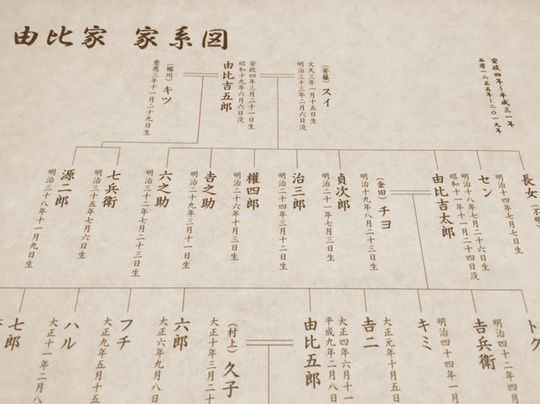 由比家 家系図
安政四年～平成三一年
西暦一八五五年～二〇一九年
文久三年一月十五日生
明治三十三年二月六日没
(安藤) スイ
安政四年三月二十一日生
昭和十九年六月六日没
由比吉五郎
(堀川) キツ
慶應三年十一月二十九日生
長女
セン
明治十八年七月二十六日生
由比吉太郎
昭和十一年二月二十四日没
(金田) チヨ
明治十九年八月二十三日生
貞次郎
明治二十一年七月三日生
治三郎
明治二十四年三月十二日生
權四郎
明治二十六年十月三日生
吉之助
明治二十九年三月十一日生
六之助
明治三十二年七月二十三日生
七兵衛
明治三十五年七月六日生
源二郎
明治三十八年十一月九日生
トク
明治四十二年四月
吉兵衛
明治四十四年一月
キミ
大正元年十月五日
吉二
大正四年六月十一
平成九年二月八日
由比五郎
(村上) 久子
大正十年三月二日
六郎
大正六年九月八日
フチ
大正九年五月十
ハル
大正十一年二月八
七郎